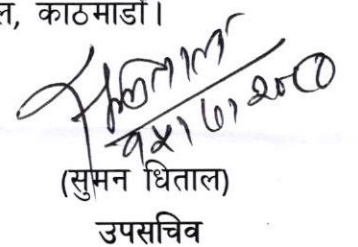 ल, काठमाडौं।
(सुमन धिताल)
उपसचिव